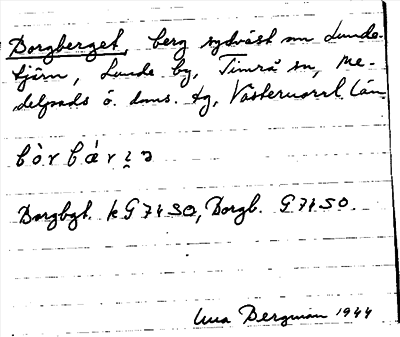 Borgberget, berg sydväst om Lunde-
tjärn, Lunde by, Timrå sn, Me-
delpads ö. doms. tg, Västernorrl. län
bòrbærj̣ə
Borgbgt. k G7450, Borgb. G7450.
Una Bergman 1944